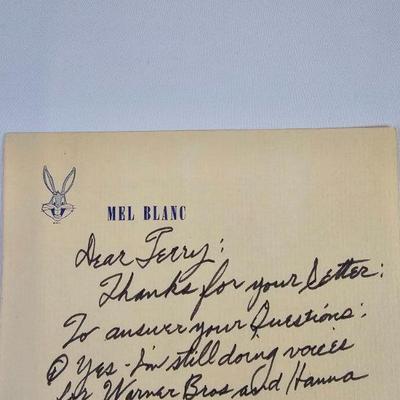 MEL BLANC
Dear Terry:
Thanks for your Letter:
To answer your Questions:
① Yes - I'm still doing voices
for Warner Bros and Hanna